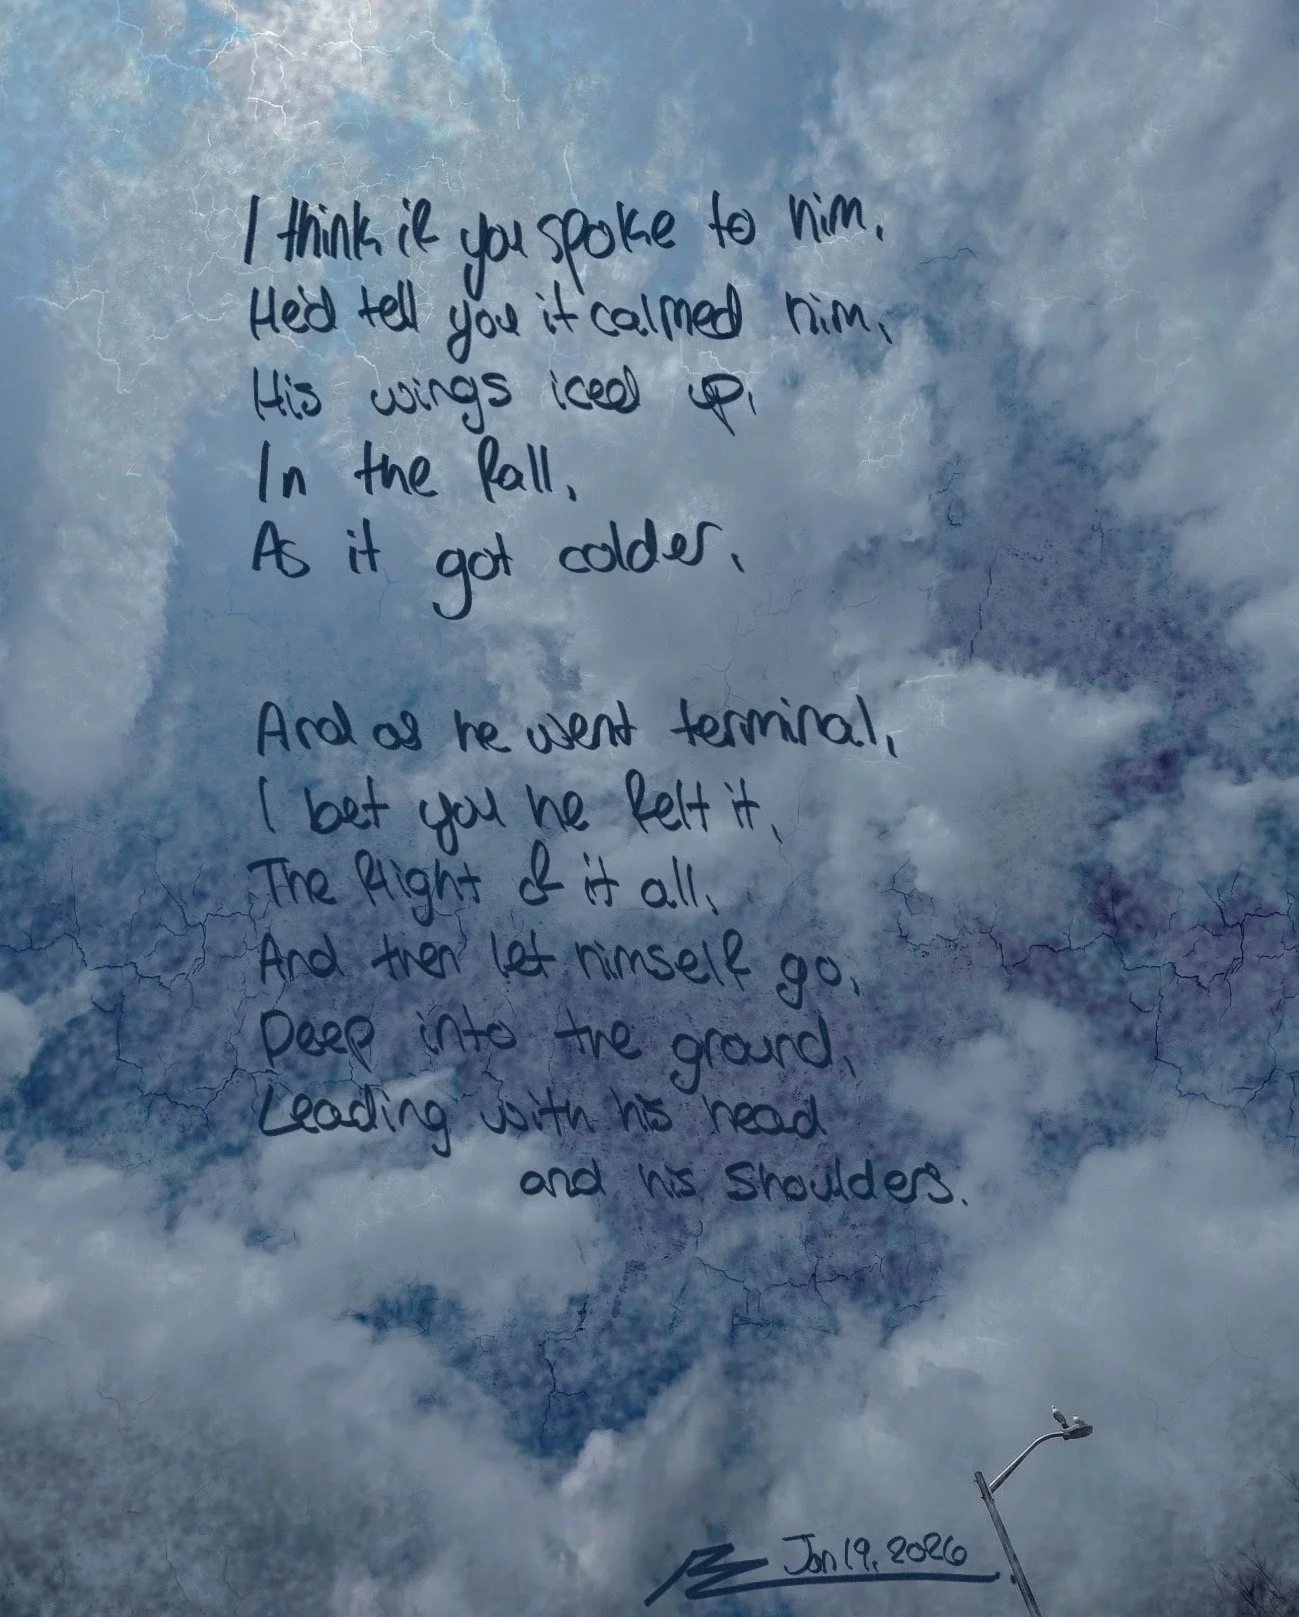 I think if you spoke to him,
He'd tell you it calmed him,
His wings iced up,
In the fall,
As it got colder,
And as he went terminal,
I bet you he felt it,
The flight of it all,
And then let himself go,
Deep into the ground,
Leading with his head
and his shoulders.
Jan 19, 2026